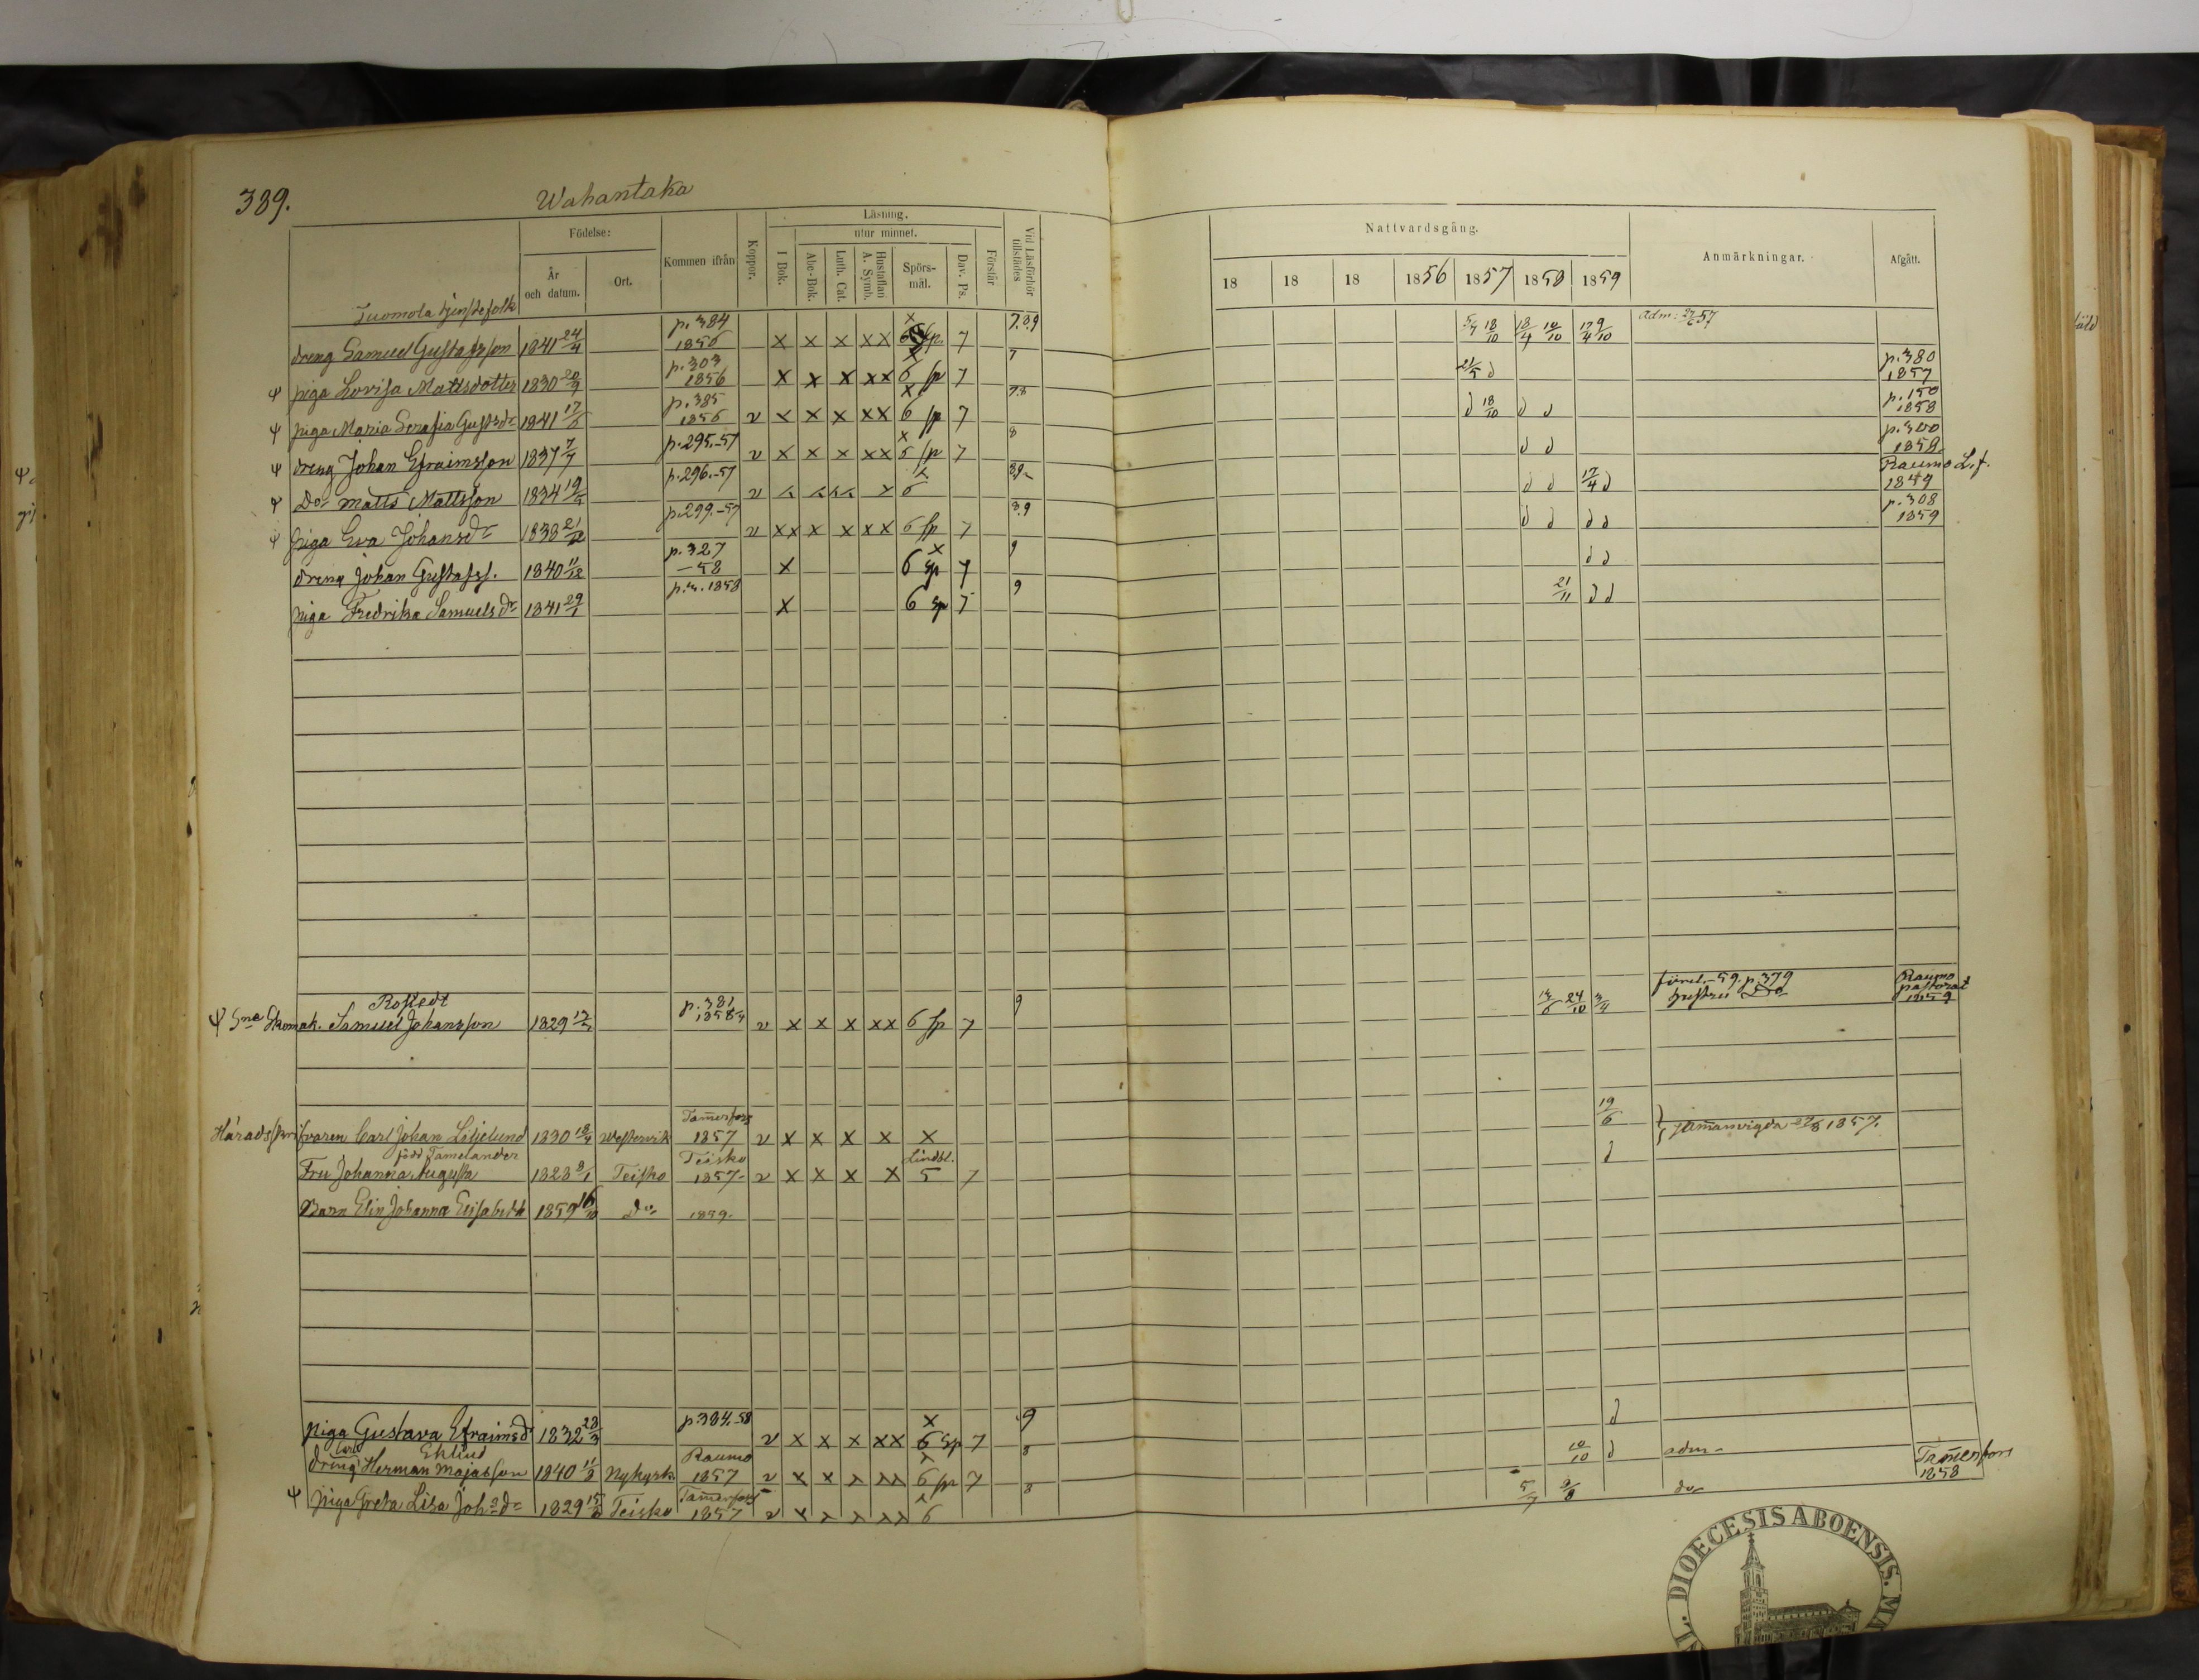 389.
Wahantaka
Födelse:
År och datum.
Ort.
Kommen ifrån
Koppor.
Läsning.
utur minnet.
I Bok.
Abc-Bok.
Luth. Cat.
Hustaflan A. Symb.
Spörs-mål.
Dav. Ps.
Förstår
Vid Läsförhör tillstädes
Nattvardsgång.
18 18 18 1856 1857 1858 1859
Anmärkningar.
Afgått.
Tuomola tjenstefolk
dreng Samuel Gustafsson 1841 24/4 p. 384 1856 x x x xx 6 sp. 7 7.8.9 5/7 18/10 18/4 10/10 17/4 9/10 Adm: 27/6 57
Ψ piga Lovisa Mattsdotter 1830 p. 303 1856 x x x xx 6 sp 7 7 21/5 d p. 380 1857
Ψ piga Maria Serafia Gustsdr 1841 p. 385 1856 v x x x xx 6 sp 7 7.8 d 18/10 d d p. 150 1858
Ψ dreng Johan Efraimsson 1837 7/7 p. 295.-57 v x x x xx 5 sp 7 8 d d p. 300 1858
Ψ Do Matts Mattsson 1834 p. 296.-57 v 6 8.9 d d 17/4 d Raumo L.f. 1859
Ψ piga Eva Johansdr 1838 p. 299.-57 v xx x x xx 6 sp 7 8.9 d d d d p. 308 1859
dreng Johan Gustafss. 1840 11/12 p. 327 -58 x 6 sp 7 9 d d
piga Fredrika Samuelsdr 1841 29/1 1858 x 6 sp 7 9 21/11 d d
Rostedt
Ψ Sne Skomak. Samuel Johansson 1829 p. 381 1858 v x x x xx 6 sp 7 9 24/10 3/4 p. 379 Raumo pastorat 1859
Häradsskrifvaren Carl Johan Liljelund 1830 18/4 Westervik Tam̄erfors 1857 v x x x x x 19/6 sam̄anvigda 1857.
född Tamelander
Fru Johanna Augusta 1828 Teisko Teisko 1857 v x x x x Lindbl. 5 7 d
Barn Elin Johanna Elisabeth 1859 16/10 Do 1859.
piga Gustava Efraimsdr 1832 28/3 p. 384.58 v x x x xx 6 sp 7 9 d
Carl Eklund
dreng Herman Majasson 1840 Nykyrk. Raumo 1857 v x x 6 sp 7 8 10/10 d adm
Ψ piga Greta Lisa Johsdr 1829 Teisko Tam̄erfors 1857 v 6 8 5/7 do Tam̄erfors 1858
DIOECESIS ABOENSIS.